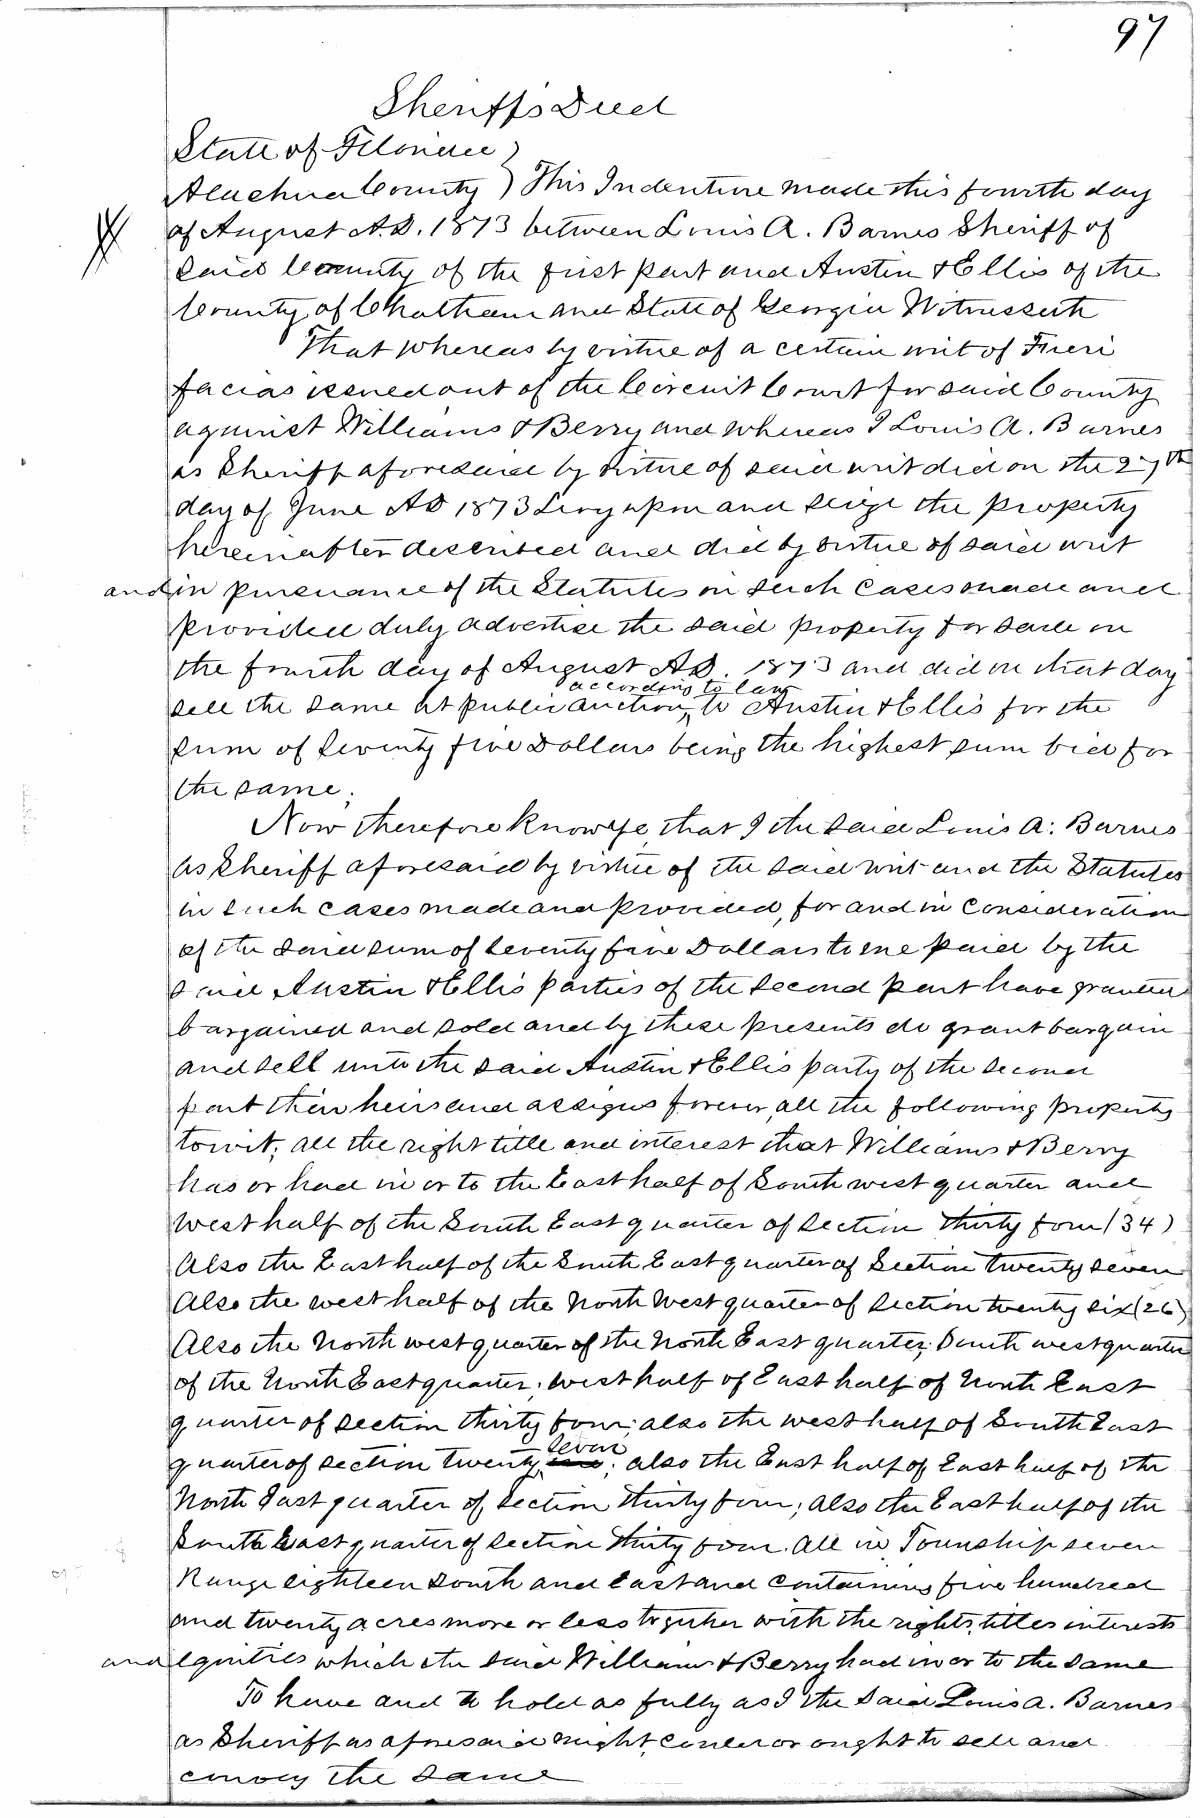 97
Sheriff's Deed
State of Florida }
Alachua County } This Indenture made this fourth day
of August A.D. 1873 between Louis A. Barnes Sheriff of
said County of the first part and Austin & Ellis of the
County of Chatham and State of Georgia Witnesseth
That whereas by virtue of a certain writ of Fieri
facias issued out of the Circuit Court for said County
against Williams & Berry and whereas I Louis A. Barnes
as Sheriff aforesaid by virtue of said writ did on the 27th
day of June AD 1873 Levy upon and seize the property
hereinafter described and did by virtue of said writ
and in pursuance of the Statutes in such cases made and
provided duly advertise the said property for sale on
the fourth day of August AD. 1873 and did on that day
according to law
sell the same at public auction, to Austin & Ellis for the
sum of Seventy five Dollars being the highest sum bid for
the same;
Now therefore know ye, that I the said Louis A. Barnes
as Sheriff aforesaid by virtue of the said writ and the Statutes
in such cases made and provided, for and in Consideration
of the said sum of seventy five Dollars to me paid by the
said Austin & Ellis parties of the second part have granted
bargained and sold and by these presents do grant bargain
and sell unto the said Austin & Ellis party of the second
part their heirs and assigns forever, all the following property
towit; all the right title and interest that Williams & Berry
has or had in or to the East half of South west quarter and
West half of the South East quarter of Section thirty four (34)
Also the East half of the South East quarter of Section twenty seven
Also the west half of the North West quarter of Section twenty six (26)
Also the North west quarter of the North East quarter; South west quarter
of the North East quarter; west half of East half of North East
quarter of section thirty four; also the west half of South East
seven
quarter of section twenty; also the East half of East half of the
North East quarter of Section thirty four; Also the East half of the
South East quarter of Section thirty four. All in Township seven
Range eighteen South and East and containing five hundred
and twenty acres more or less together with the rights, titles interests
and equities which the said Williams & Berry had in or to the same
To have and to hold as fully as I the said Louis A. Barnes
as Sheriff as aforesaid might, could or ought to sell and
convey the same